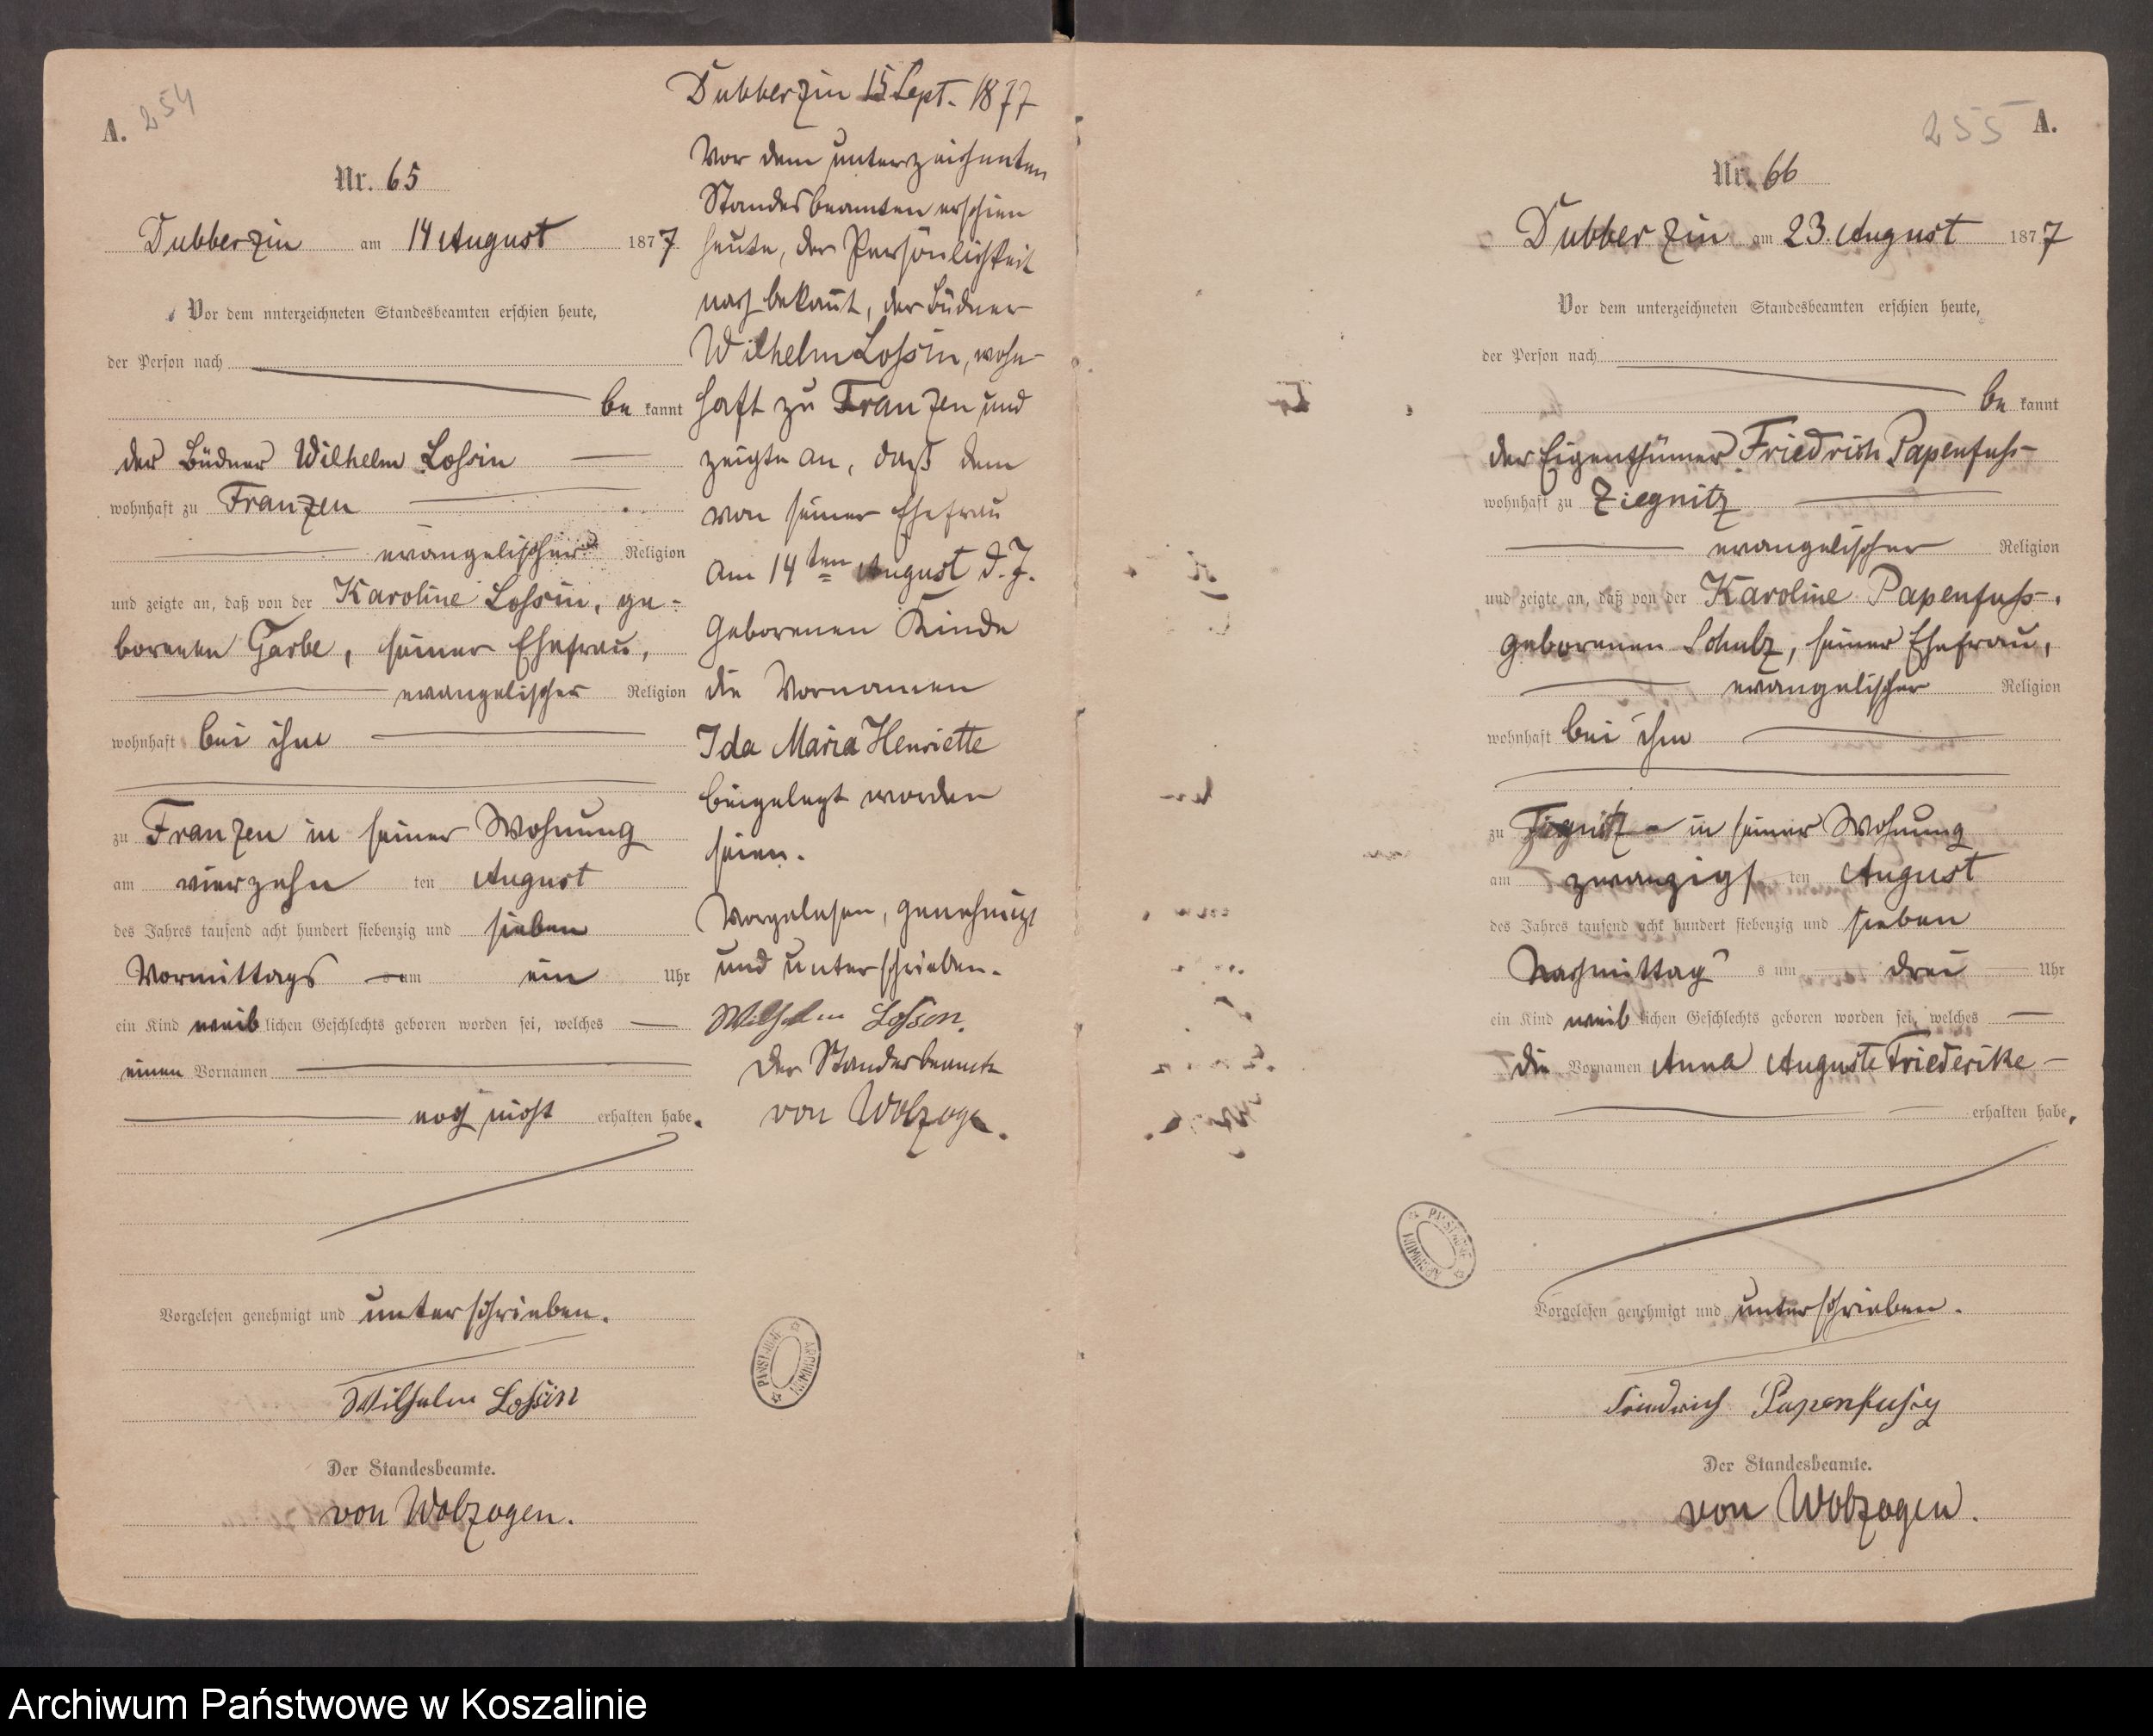 A. 254
Nr. 65
Dubberzin am 14 August 1877
Vor dem unterzeichneten Standesbeamten erschien heute,
der Person nach
be kannt
der Büdner Wilhelm Lossin
wohnhaft zu Franzen
evangelischer Religion
und zeigte an, daß von der Karoline Lossin, ge-
borenen Garbe, seiner Ehefrau,
evangelischer Religion
wohnhaft bei ihm
zu Franzen in seiner Wohnung
am vierzehn ten August
des Jahres tausend acht hundert siebenzig und sieben
Vormittags um ein Uhr
ein Kind weib lichen Geschlechts geboren worden sei, welches
einen Vornamen
noch nicht erhalten habe.
Vorgelesen genehmigt und unterschrieben.
Wilhelm Lossin
Der Standesbeamte.
von Wolzogen.
Dubberzin 15 Sept. 1877
Vor dem unterzeichneten
Standesbeamten erschien
heute, der Persönlichkeit
nach bekannt, der Büdner
Wilhelm Lossin, wohn-
haft zu Franzen und
zeigte an, daß dem
von seiner Ehefrau
am 14ten August d. J.
geborenen Kinde
die Vornamen
Ida Maria Henriette
beigelegt worden
seien.
Vorgelesen, genehmigt
und unterschrieben.
Wilhelm Lossin.
Der Standesbeamte
von Wolzogen.
PAŃSTWOWE ARCHIWUM
255 A.
Nr. 66
Dubberzin am 23. August 1877
Vor dem unterzeichneten Standesbeamten erschien heute,
der Person nach
be kannt
der Eigenthümer Friedrich Papenfuss
wohnhaft zu Ziegnitz
evangelischer Religion
und zeigte an, daß von der Karoline Papenfuss,
geborenen Schulz, seiner Ehefrau,
evangelischer Religion
wohnhaft bei ihm
zu Ziegnitz in seiner Wohnung
am zwanzigs ten August
des Jahres tausend acht hundert siebenzig und sieben
Nachmittag s um drei Uhr
ein Kind weib lichen Geschlechts geboren worden sei, welches
die Vornamen Anna Auguste Friederike
erhalten habe.
Vorgelesen genehmigt und unterschrieben.
Friedrich Papenfuss
Der Standesbeamte.
von Wolzogen.
PAŃSTWOWE ARCHIWUM
Archiwum Państwowe w Koszalinie